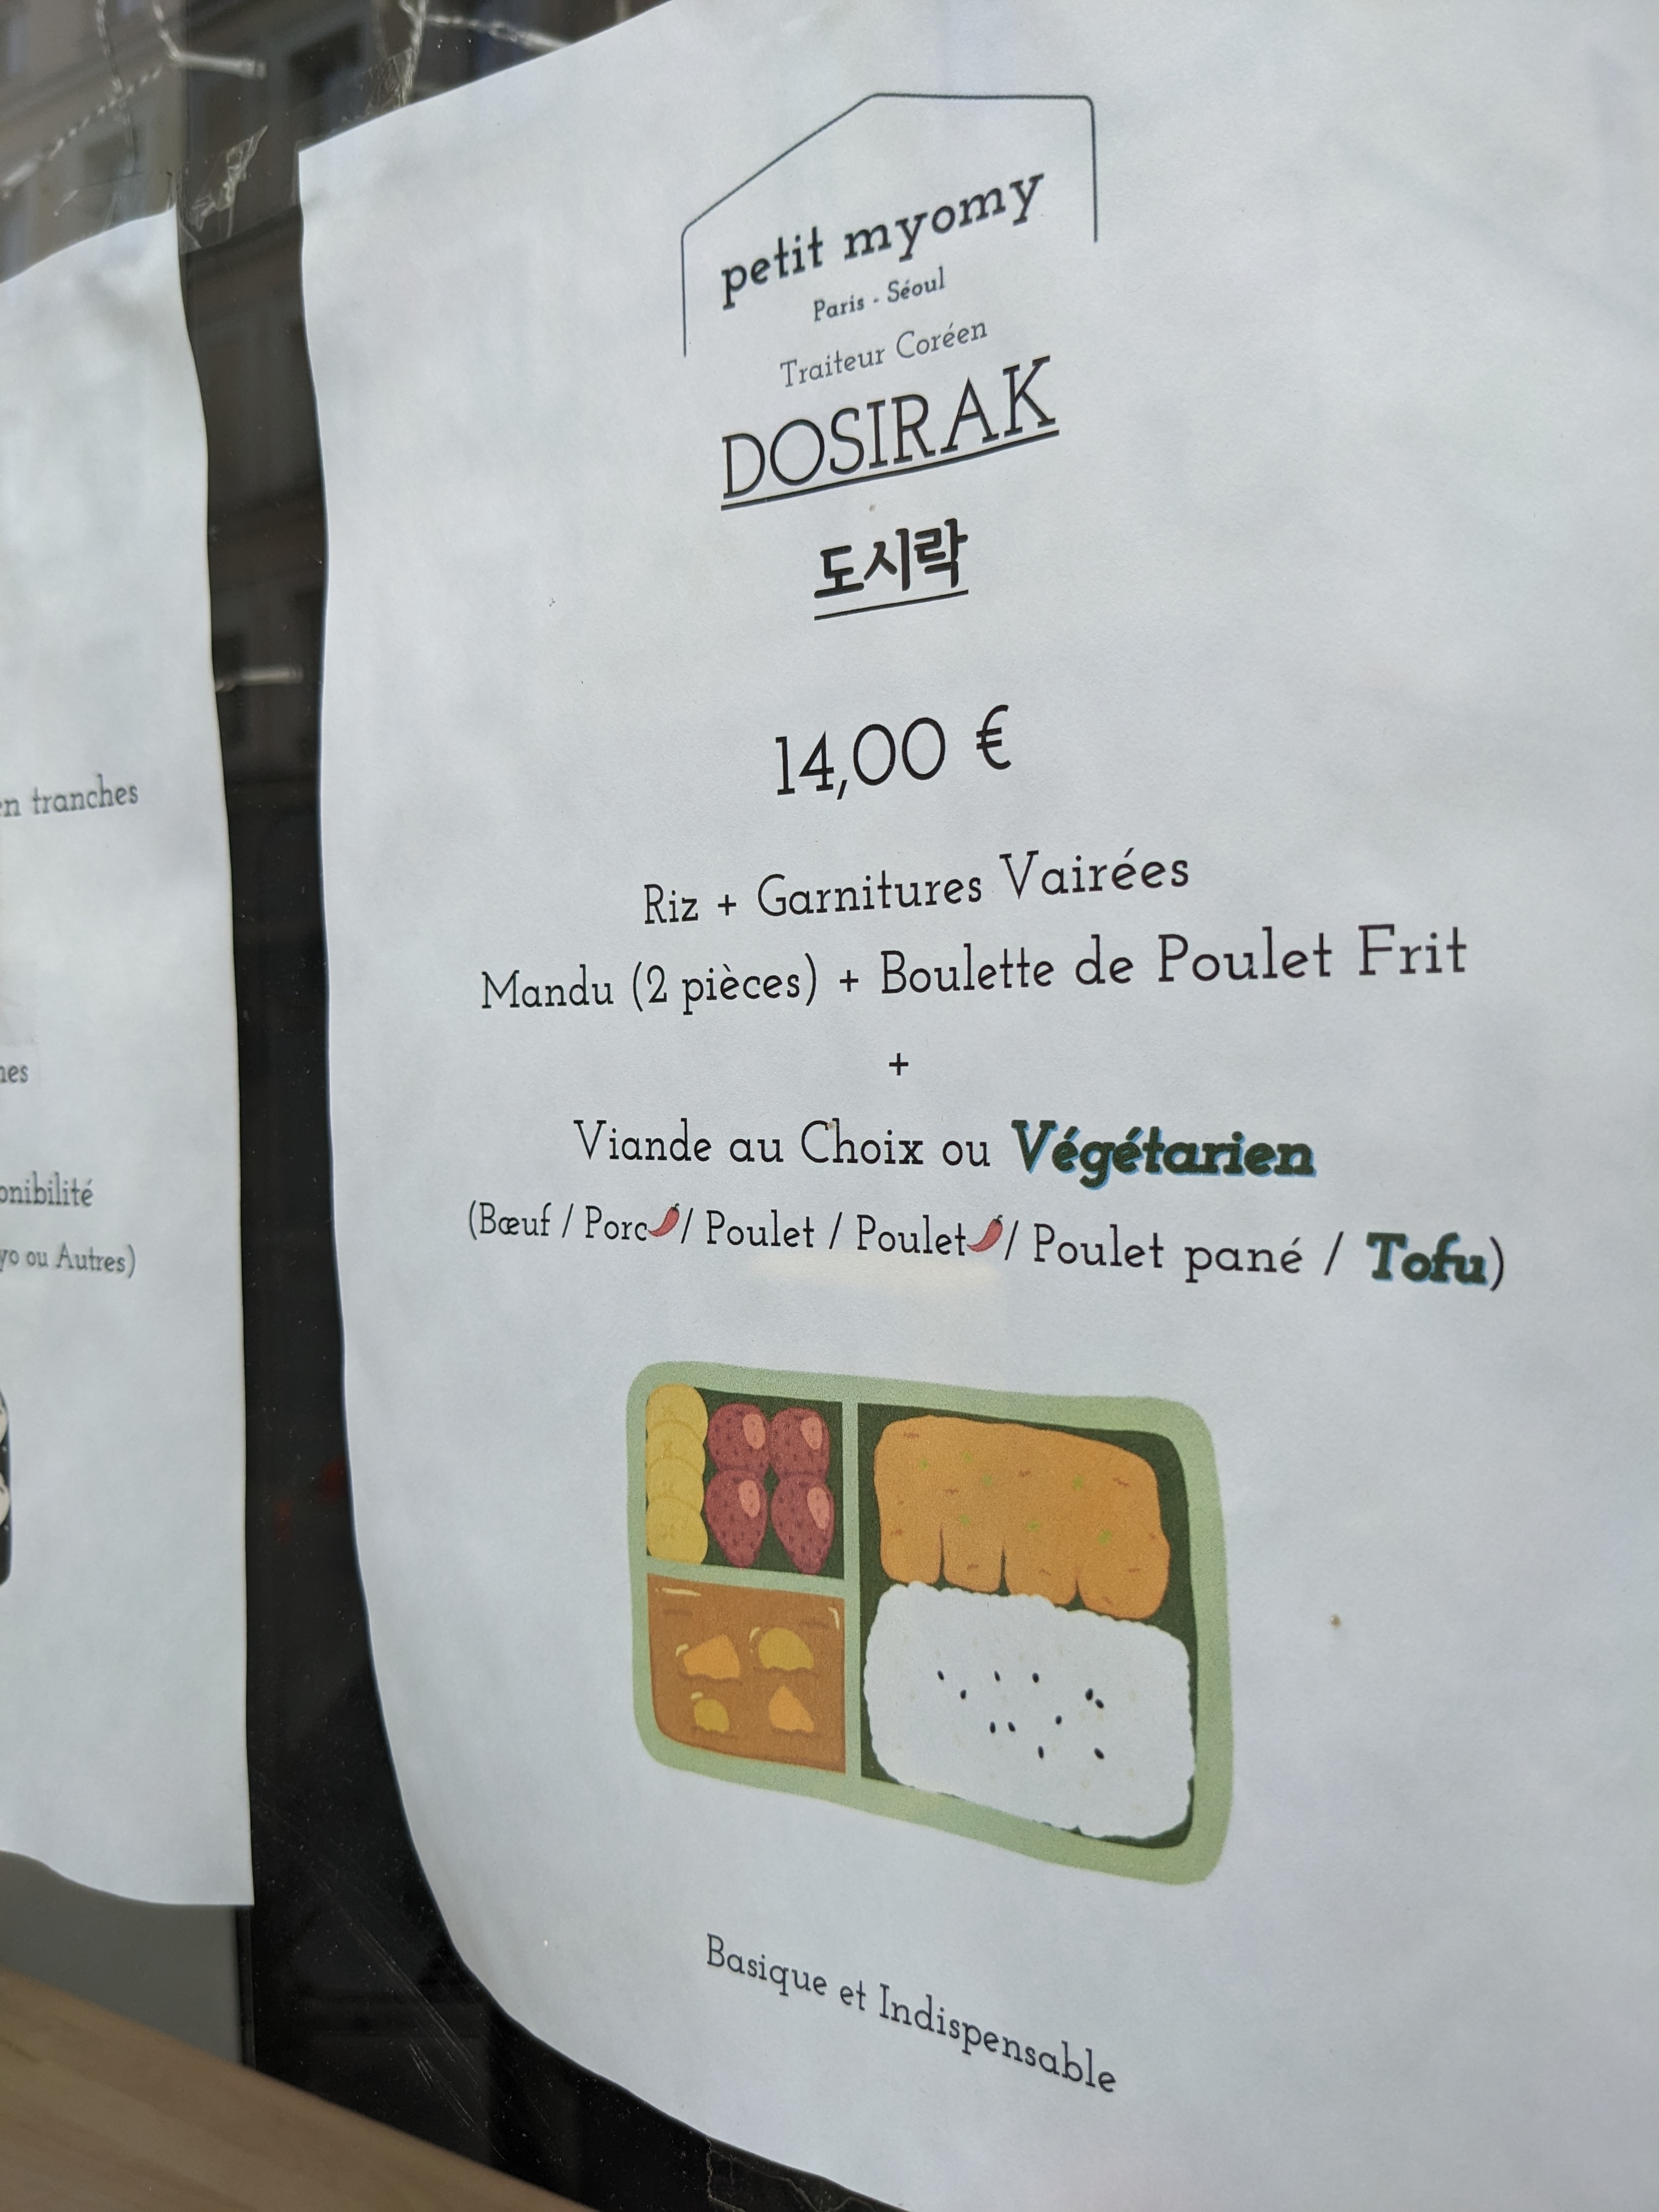 petit myomy
Paris - Séoul
Traiteur Coréen
DOSIRAK
도시락
14,00 €
Riz + Garnitures Vairées
Mandu (2 pièces) + Boulette de Poulet Frit
+
Viande au Choix ou Végétarien
(Bœuf / Porc🌶/ Poulet / Poulet🌶/ Poulet pané / Tofu)
Basique et Indispensable
en tranches
ou Autres)